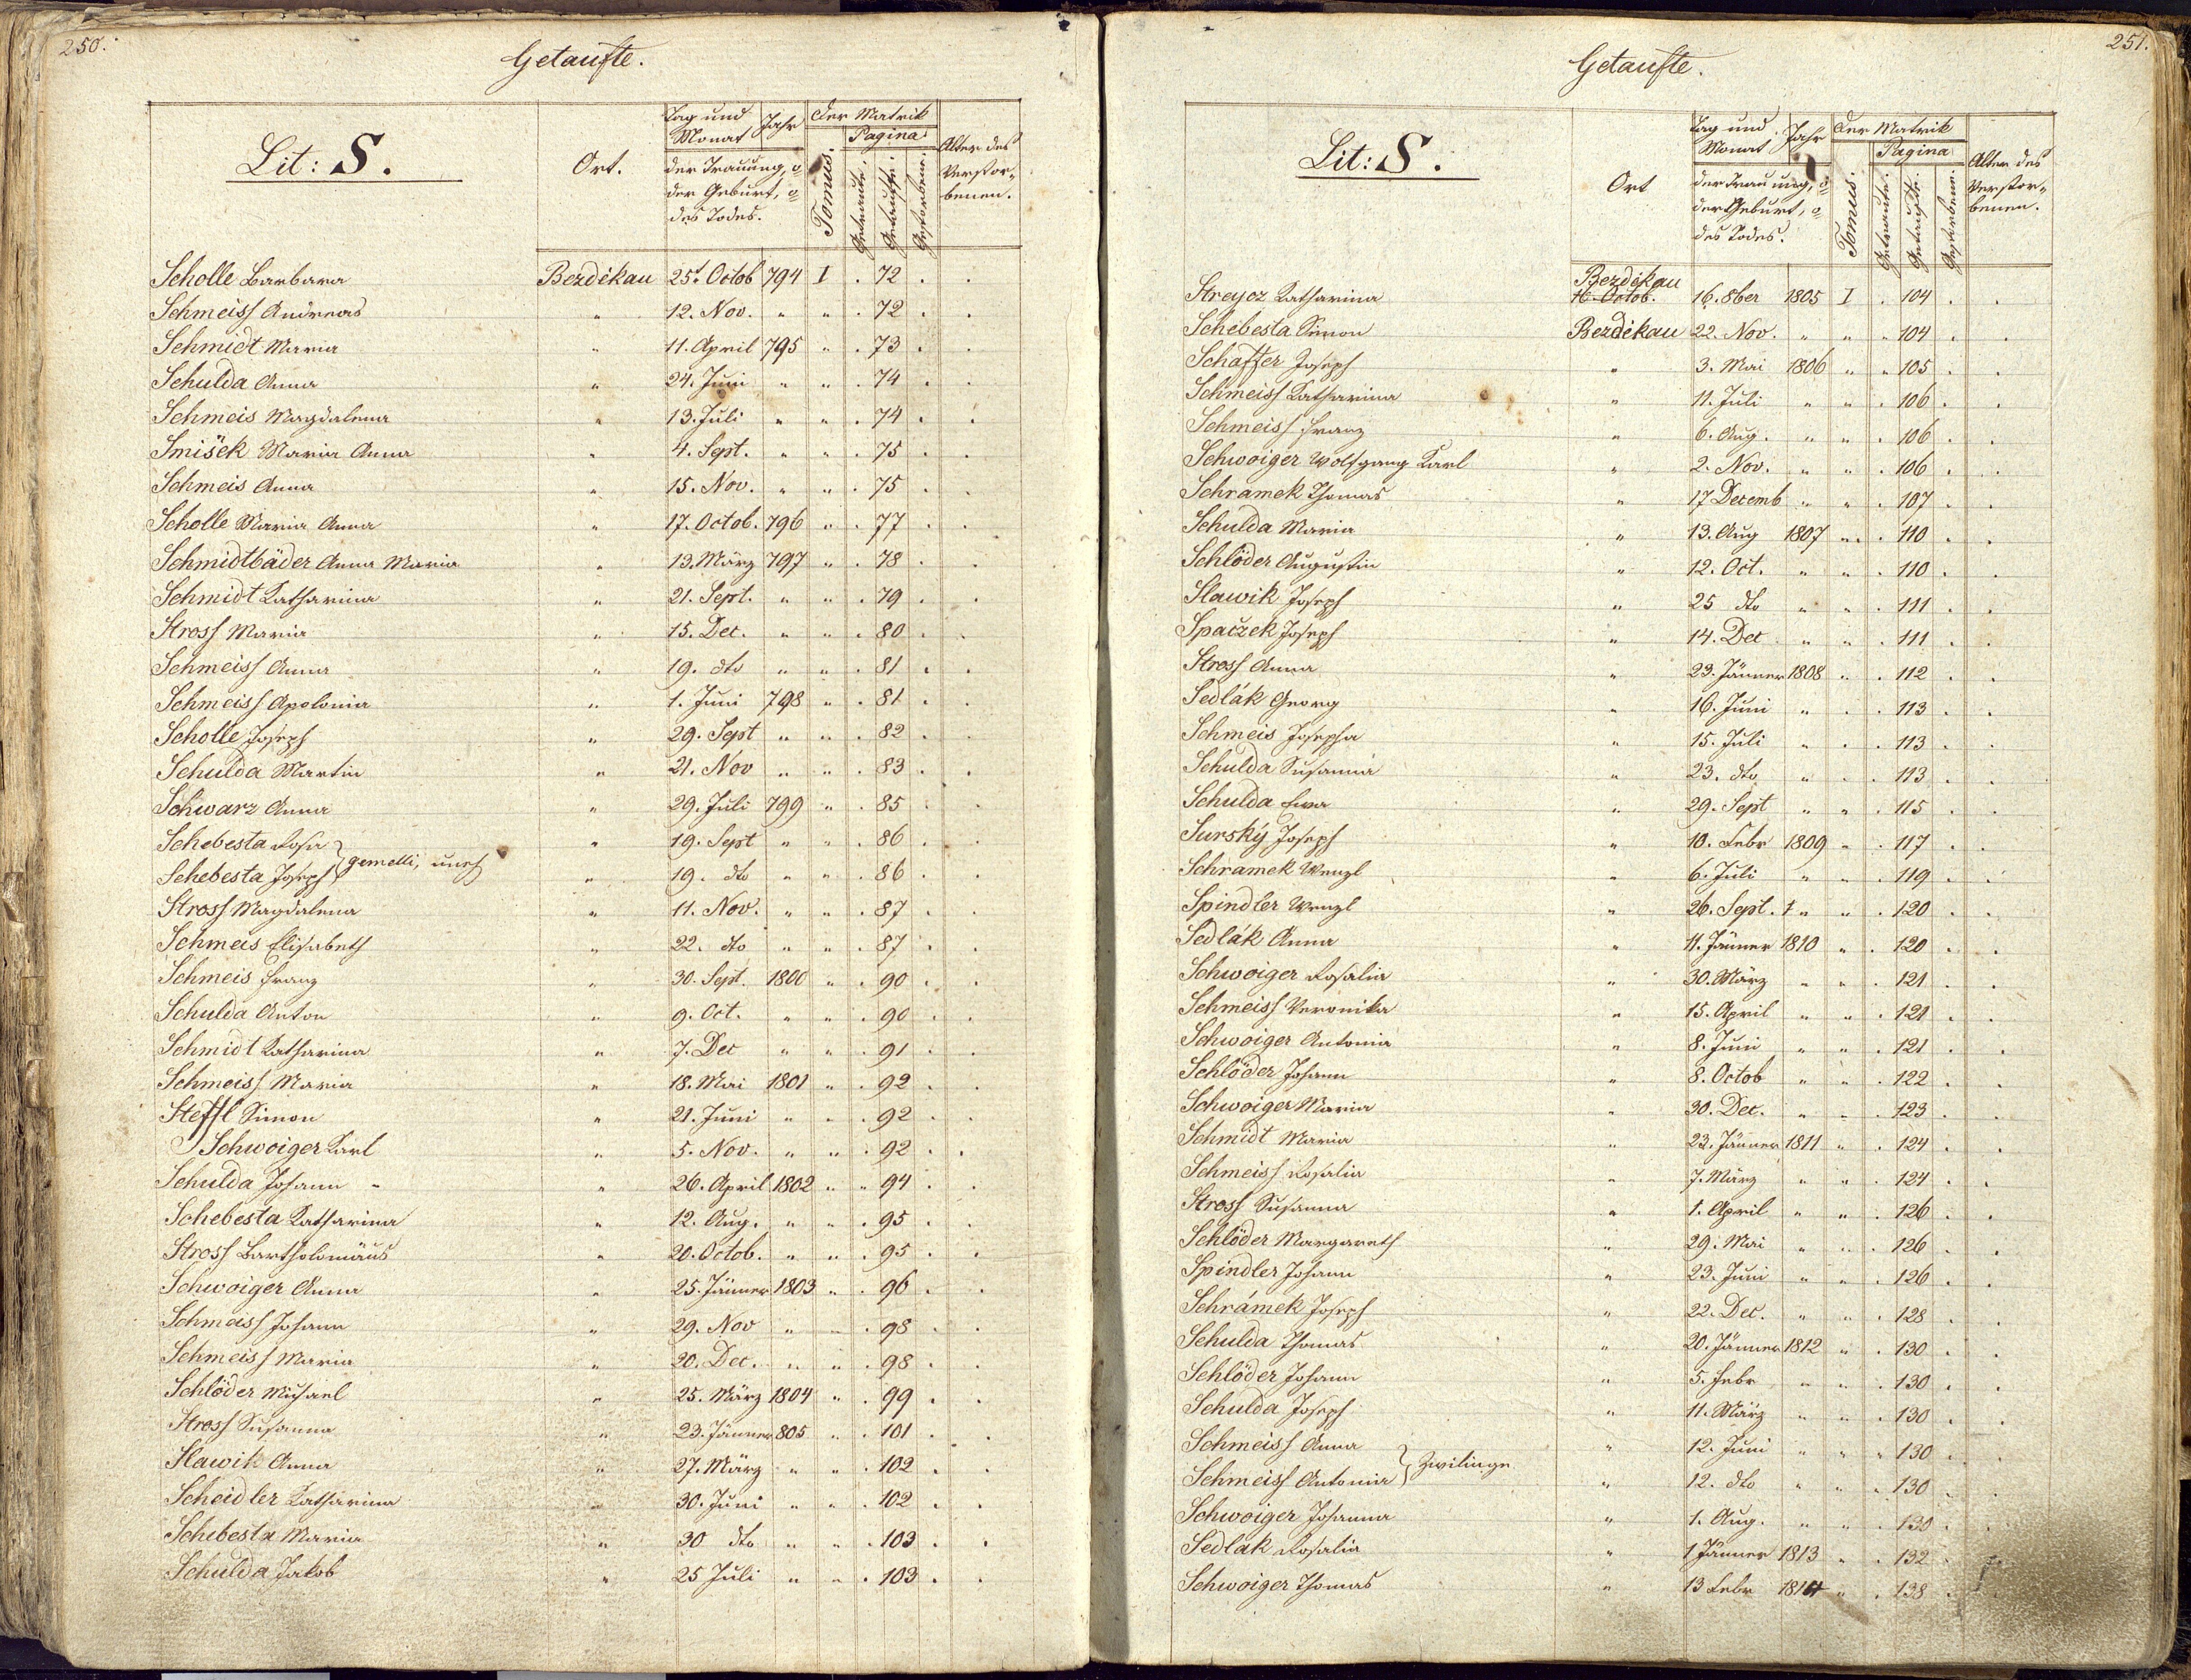 250.
Getaufte.
Lit: S.
Ort.
Tag und Monat
Jahr
der Trauung, o
der Geburt, o
des Todes.
Der Matrik
Tomus.
Pagina
Getraute.
Getaufte.
Gestorbene.
Alter des
Verstor-
benen.
Scholle Barbara Bezdèkau 25t Octob 794 I . 72 . .
Schmeiss Andreas " 12. Nov. " " . 72 . .
Schmidt Maria " 11. April 795 " . 73 . .
Schulda Anna " 24. Juni " " . 74 . .
Schmeis Magdalena " 13. Juli " " . 74 . .
Smišek Maria Anna " 4. Sept. " " . 75 . .
Schmeis Anna " 15. Nov. " " . 75 . .
Scholle Maria Anna " 17. Octob. 796 " . 77 . .
Schmidtbäder Anna Maria " 13. März 797 " . 78 . .
Schmidt Katharina " 21. Sept. " " . 79 . .
Stross Maria " 15. Dec. " " . 80 . .
Schmeiss Anna " 19. dto " " . 81 . .
Schmeiss Apolonia " 1. Juni 798 " . 81 . .
Scholle Joseph " 29. Sept " " . 82 . .
Schulda Martin " 21. Nov " " . 83 . .
Schwarz Anna " 29. Juli 799 " . 85 . .
Schebesta Rosa " 19. Sept " " . 86 . .
gemelli, uneh
Schebesta Joseph " 19. dto " " . 86 . .
Stross Magdalena " 11. Nov. " " . 87 . .
Schmeis Elisabeth " 22. dto " " . 87 . .
Schmeis Franz " 30. Sept. 1800 " . 90 . .
Schulda Anton " 9. Oct. " " . 90 . .
Schmidt Katharina " 7. Dec " " . 91 . .
Schmeiss Maria " 18. Mai 1801 " . 92 . .
Steffl Simon " 21. Juni " " . 92 . .
Schwoiger Karl " 5. Nov. " " . 92 . .
Schulda Johann " 26. April 1802 " " 94 . .
Schebesta Katharina " 12. Aug. " " . 95 . .
Stross Bartholomäus " 20. Octob. " " . 95 . .
Schwoiger Anna " 25. Jänner 1803 " . 96 . .
Schmeiss Johann " 29. Nov " " . 98 . .
Schmeiss Maria " 20. Dec. " " . 98 . .
Schlöder Michael " 25. März 1804 " . 99 . .
Stross Susanna " 23. Jänner 805 " . 101 . .
Slawik Anna " 27. März " " . 102 . .
Scheidler Katharina " 30. Juni " " . 102 . .
Schebesta Maria " 30 dto " " . 103 . .
Schulda Jakob " 25 Juli " " . 103 . .
251.
Getaufte.
Lit: S.
Ort
Tag und Monat
Jahr
der Trauung, o
der Geburt, o
des Todes.
Der Matrik
Tomus.
Pagina
Getraute.
Getaufte.
Gestorbene.
Alter des
Verstor-
benen.
Bezdèkau
Streycz Katharina 16. Octob. 16. 8ber 1805 I . 104 . .
Schebesta Simon Bezdèkau 22. Nov. " " " 104 . .
Schaffer Joseph " 3. Mai 1806 " " 105 . .
Schmeiss Katharina " 11. Juli " " . 106 . .
Schmeiss Franz " 6. Aug. " " . 106 . .
Schwoiger Wolfgang Karl " 2. Nov. " " . 106 . .
Schramek Thomas " 17 Decemb " " . 107 . .
Schulda Maria " 13. Aug 1807 " . 110 . .
Schlöder Augustin " 12. Oct. " " . 110 . .
Slawik Joseph " 25 dto " " . 111 . .
Spaczek Joseph " 14. Dec " " . 111 . .
Stross Anna " 23. Jänner 1808 " . 112 . .
Sedlák Georg " 16. Juni " . . 113 . .
Schmeis Josepha " 15. Juli " . . 113 . .
Schulda Susanna " 23. dto " . . 113 . .
Schulda Ewa " 29. Sept " " . 115 . .
Surský Joseph " 10. Febr 1809 " . 117 . .
Schramek Wenzl " 6. Juli " " . 119 . .
Spindler Wenzl " 26. Sept. " " . 120 . .
Sedlák Anna " 11. Jänner 1810 " . 120 . .
Schwoiger Rosalia " 30. März " " . 121 . .
Schmeiss Veronika " 15. April " " . 121 . .
Schwoiger Antonia " 8. Juni " " . 121 . .
Schlöder Johann " 8. Octob " " . 122 . .
Schwoiger Maria " 30. Dec. " " . 123 . .
Schmidt Maria " 23. Jänner 1811 " . 124 . .
Schmeiss Rosalia " 7. März " " . 124 . .
Stross Susanna " 1. April " " . 126 . .
Schlöder Margareth " 29. Mai " " . 126 . .
Spindler Johann " 23. Juni " " . 126 . .
Schrámek Joseph " 22. Dec. " " . 128 . .
Schulda Thomas " 20. Jänner 1812 " . 130 . .
Schlöder Johann " 5. Febr " " . 130 . .
Schulda Joseph " 11. März " " . 130 . .
Schmeiss Anna " 12. Juni " " " 130 . .
Zwilinge
Schmeiss Antonia " 12. dto " " " 130 . .
Schwoiger Johanna " 1. Aug. " " . 130 . .
Sedlak Rosalia " 1 Jänner 1813 " . 132 .
Schwoiger Thomas " 13 Febr 1814 " . 138 .